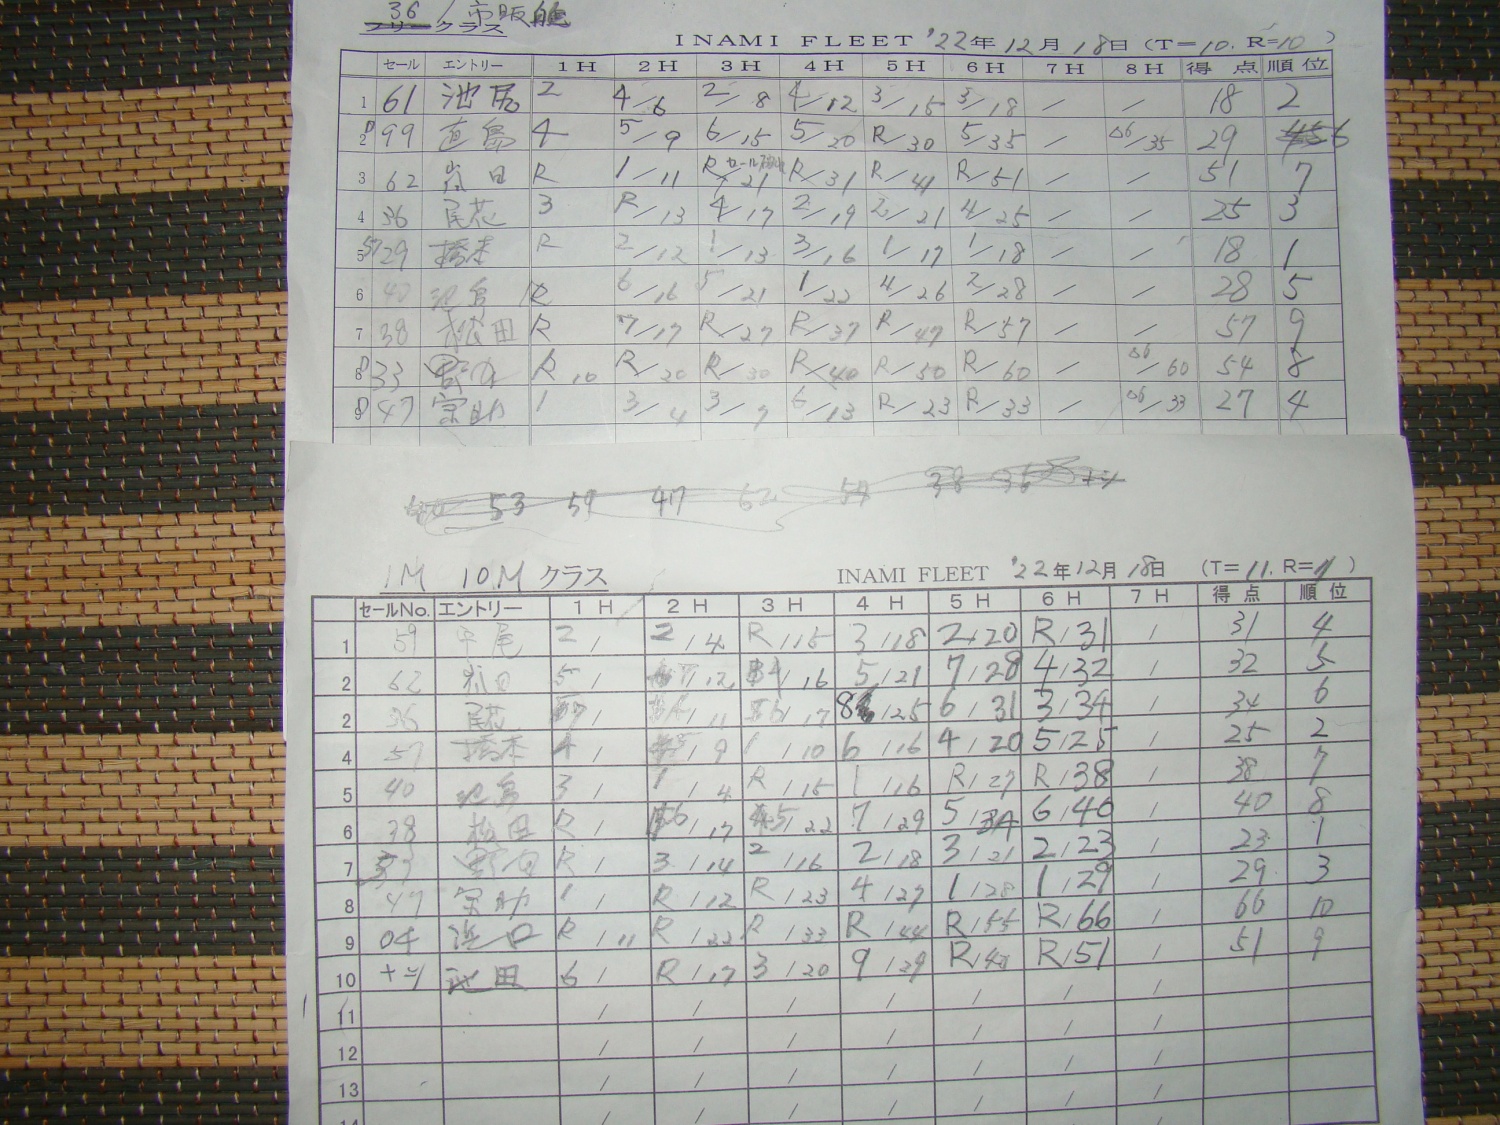 36 / 市販艇
フリークラス
INAMI FLEET '22年 12月 18日 (T=10. R=10)
セール エントリー 1H 2H 3H 4H 5H 6H 7H 8H 得点 順位
1 61 池尻 2 4/6 2/8 4/12 3/15 3/18 / / 18 2
2 99 直島 4 5/9 6/15 5/20 R/30 5/35 / △6/35 29 6
3 62 岩田 R 1/11 R/21 R/31 R/41 R/51 / / 51 7
4 36 尾花 3 R/13 4/17 2/19 2/21 4/25 / / 25 3
5 29 橋本 R 2/12 1/13 3/16 1/17 1/18 / / 18 1
6 40 R 6/16 5/21 1/22 4/26 2/28 / / 28 5
7 38 松田 R 7/17 R/27 R/37 R/47 R/57 / / 57 9
8 33 R 10 R/20 R/30 R/40 R/50 R/60 / △6/60 54 8
9 47 宗助 1 3/4 3/7 6/13 R/23 R/33 / △6/33 27 4
53 59 47 62 54 38 36
1M 10M クラス
INAMI FLEET '22年 12月 18日 (T=11. R=11)
セールNo. エントリー 1H 2H 3H 4H 5H 6H 7H 得点 順位
1 59 平尾 2/ 2/4 R/15 3/18 2/20 R/31 / 31 4
2 62 岩田 5/ /12 4/16 5/21 7/28 4/32 / 32 5
2 36 尾花 7/ /11 6/17 8/25 6/31 3/34 / 34 6
4 57 橋本 4/ 5/9 1/10 6/16 4/20 5/25 / 25 2
5 40 3/ 1/4 R/15 1/16 R/27 R/38 / 38 7
6 38 松田 R/ 6/17 5/22 7/29 5/34 6/40 / 40 8
7 R/ 3/14 2/16 2/18 3/21 2/23 / 23 1
8 47 宗助 1/ R/12 R/23 4/27 1/28 1/29 / 29 3
9 04 浜口 R/11 R/22 R/33 R/44 R/55 R/66 / 66 10
10 池田 6/ R/17 3/20 9/29 R/40 R/51 / 51 9
11 / / / / / / /
12 / / / / / / /
13 / / / / / / /
14